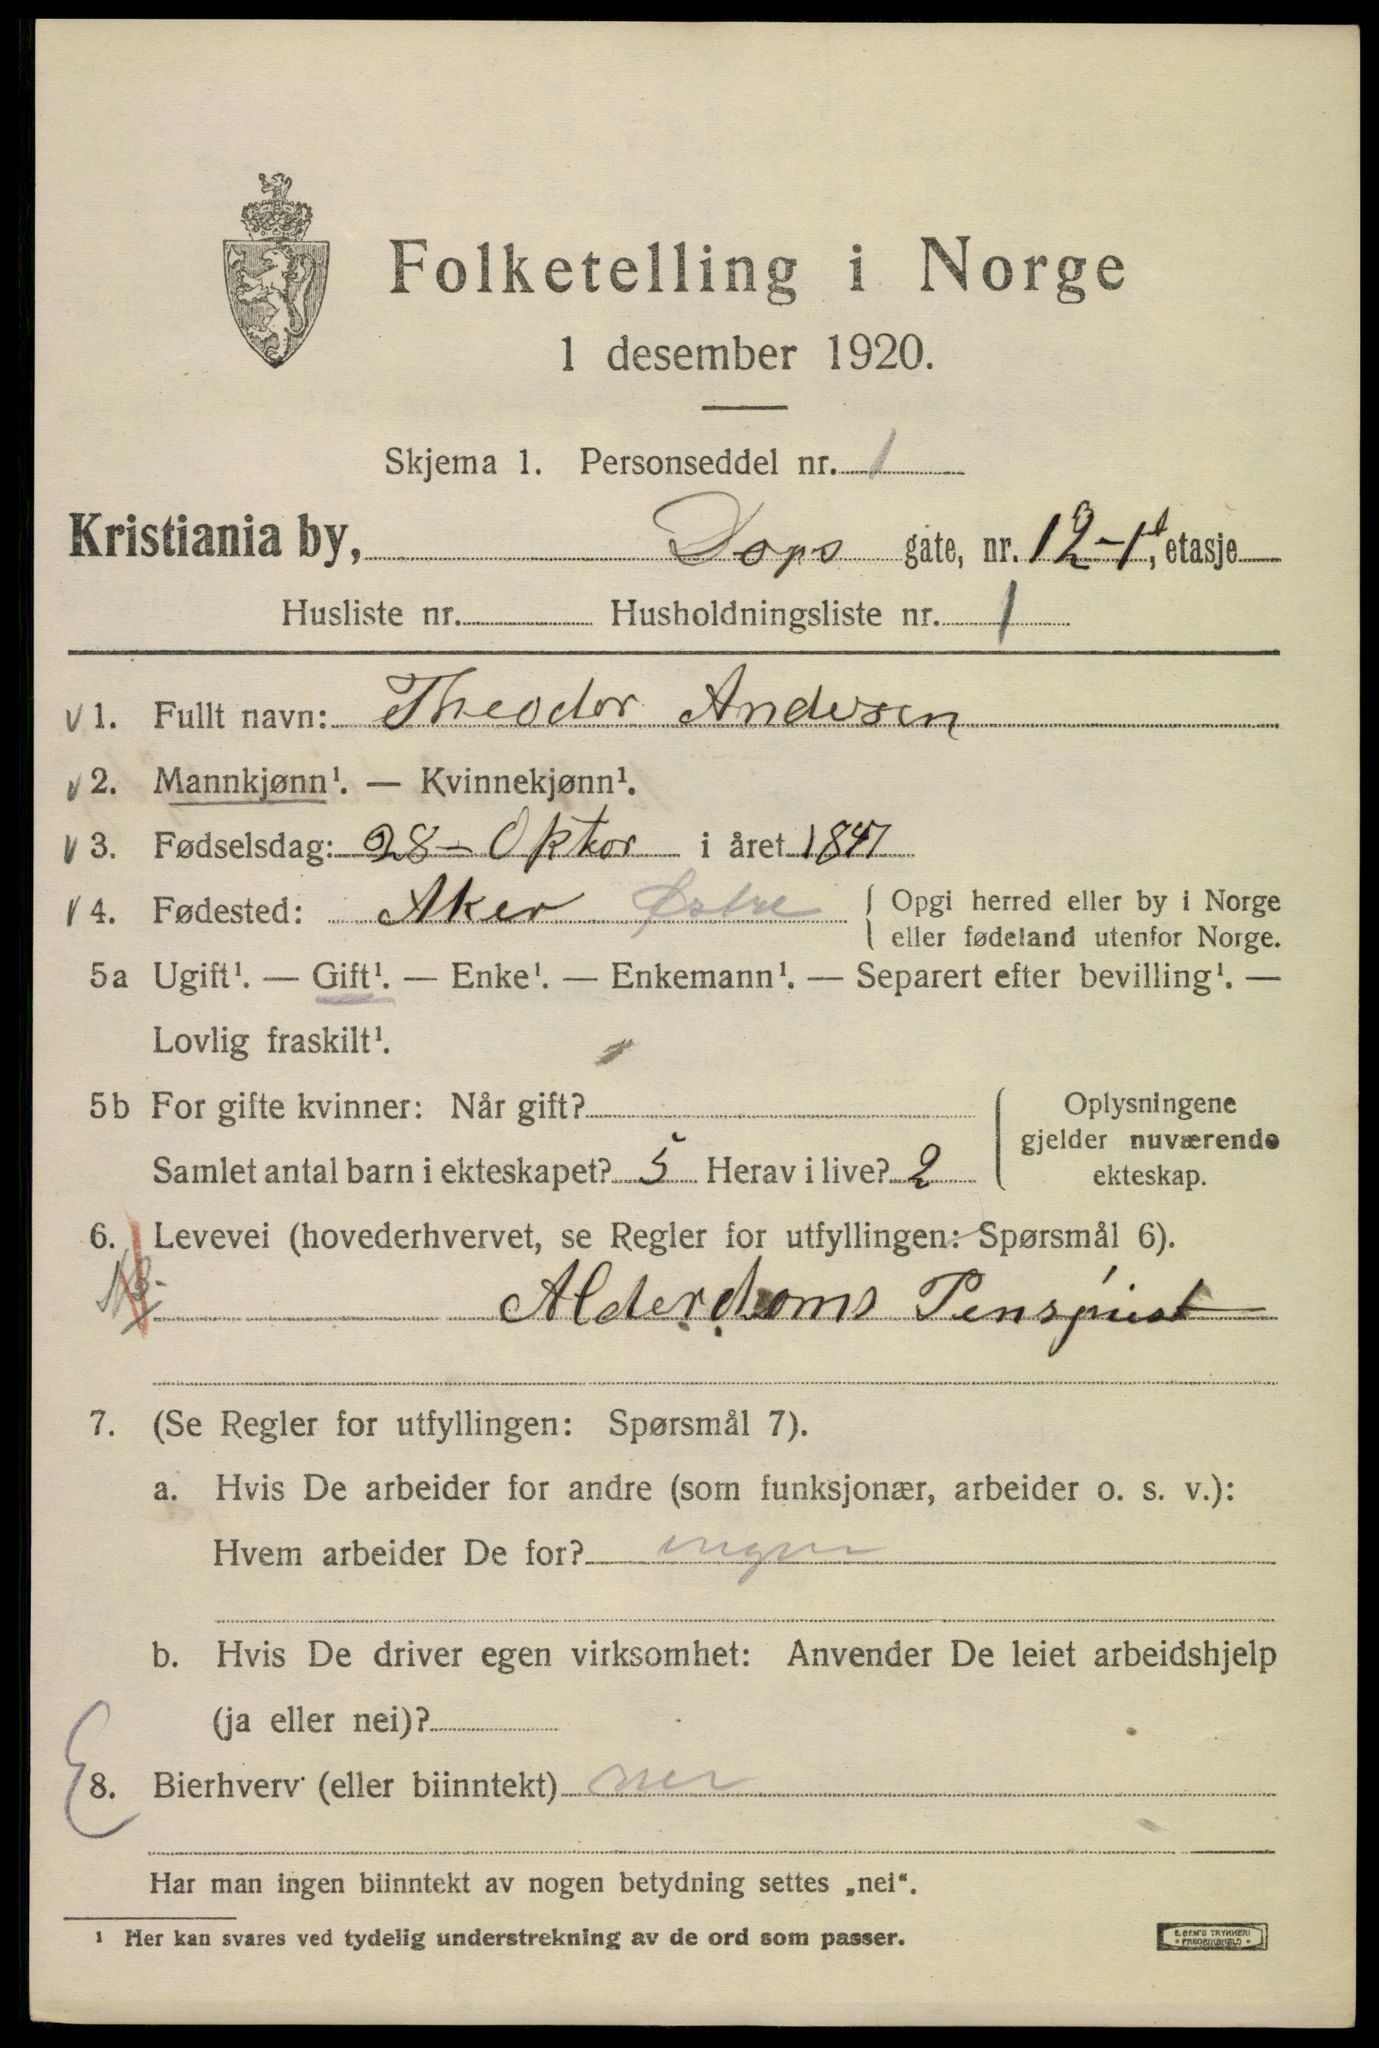 Folketelling i Norge
1 desember 1920.
Skjema 1. Personseddel nr. 1
Kristiania by, Dops gate, nr. 12-1, etasje
Husliste nr. Husholdningsliste nr. 1
1. Fullt navn: Theodor Andersen
2. Mannkjønn¹. — Kvinnekjønn¹.
3. Fødselsdag: 28 - Oktor i året 1847
4. Fødested: Aker Østre { Opgi herred eller by i Norge
eller fødeland utenfor Norge.
5a Ugift¹. — Gift¹. — Enke¹. — Enkemann¹. — Separert efter bevilling¹. —
Lovlig fraskilt¹.
5b For gifte kvinner: Når gift? ( Oplysningene
gjelder nuværende
Samlet antal barn i ekteskapet? 5 Herav i live? 2 ekteskap.
6. Levevei (hovederhvervet, se Regler for utfyllingen: Spørsmål 6).
Alderdoms Pensjinist
7. (Se Regler for utfyllingen: Spørsmål 7).
a. Hvis De arbeider for andre (som funksjonær, arbeider o. s. v.):
Hvem arbeider De for? ingen
b. Hvis De driver egen virksomhet: Anvender De leiet arbeidshjelp
(ja eller nei)?
8. Bierhverv (eller biinntekt) nei
Har man ingen biinntekt av nogen betydning settes „nei“.
¹ Her kan svares ved tydelig understrekning av de ord som passer.